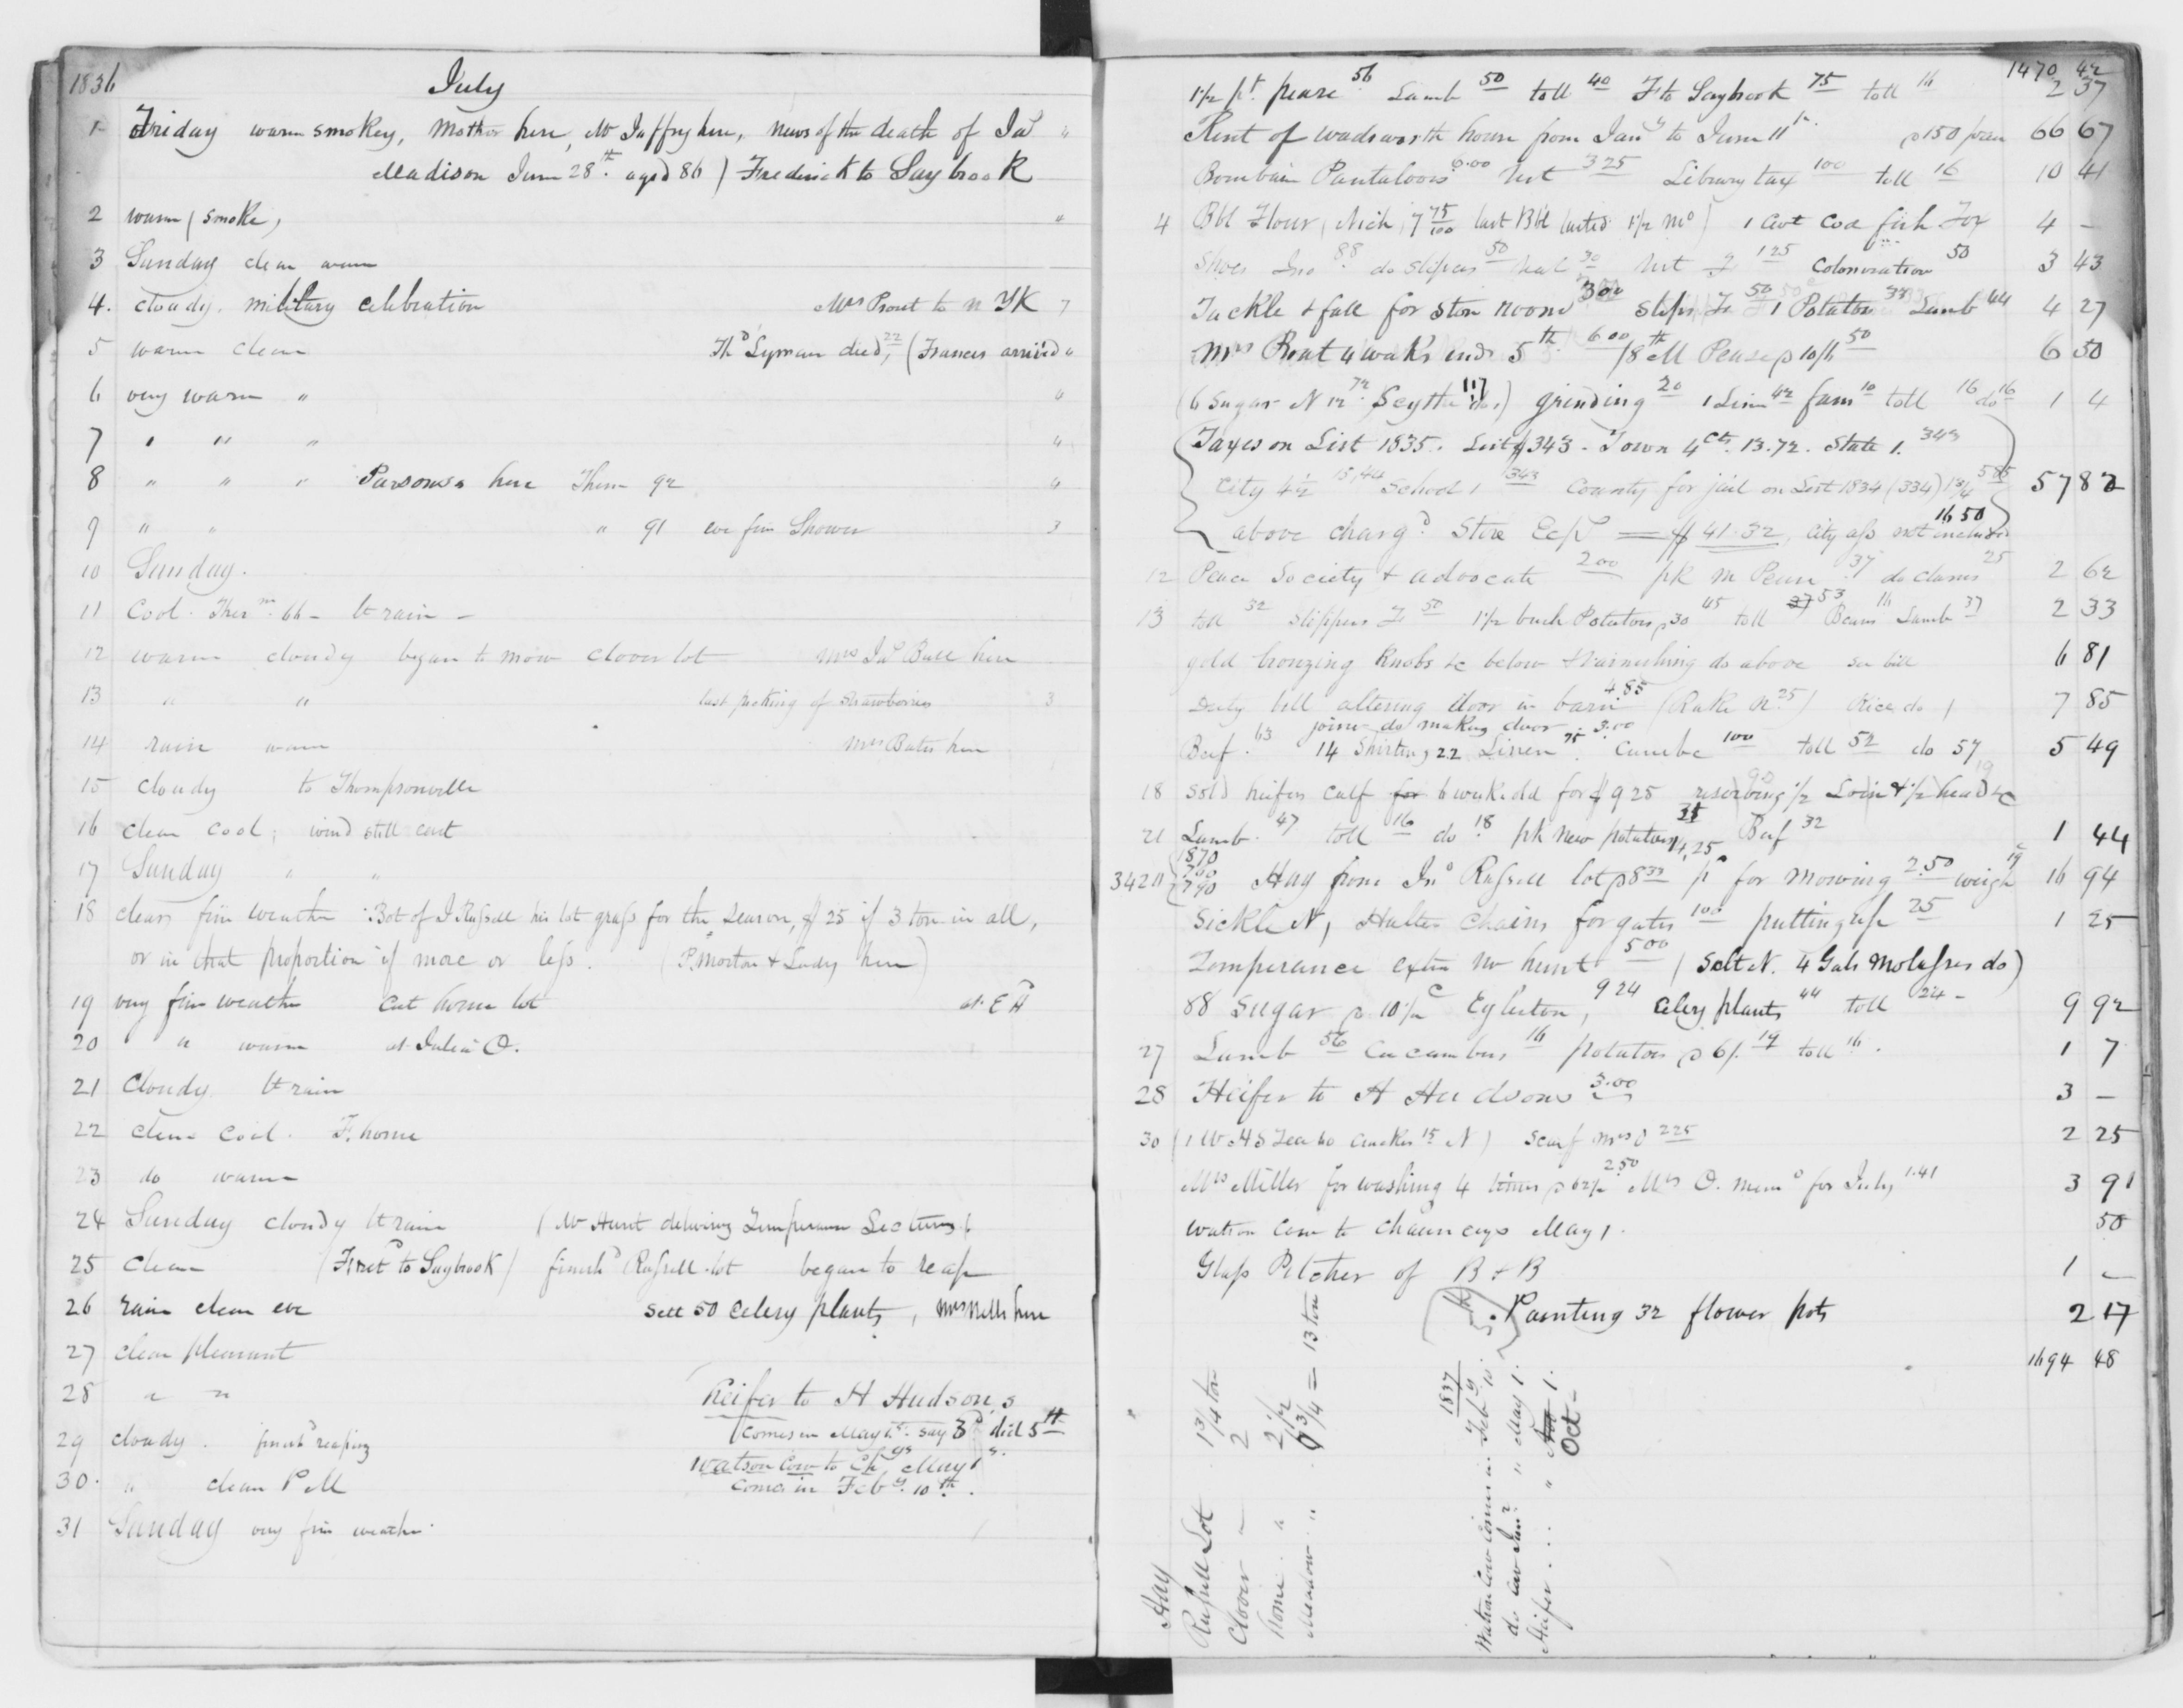 1836 July
1 Friday warm smokey, Mother here, Mr Jaffry here, news of the death of Jas "
Madison June 28th. aged 86) Frederick to Saybrook
2 warm (smoke, "
3 Sunday clear warm
4. cloudy. military celebration Mrs Prout to N YK 7
5 warm clear Thd Lyman died, 22 (Francis arrived "
6 very warm " "
7 " " " "
8 " " " Parsons here Therm 92 "
9 " " " 91 eve fine Shower 3
10 Sunday.
11 Cool. Therm. 66 - lt rain -
12 warm cloudy began to mow clover lot Mrs Jas Bull here
13 " " last picking of strawberries 3
14 rain warm Mrs Bates here
15 cloudy to Thompsonville
16 clear cool, wind still east
17 Sunday " "
18 clear fine weather Bot of J Russell his lot grass for the season, $25 if 3 ton in all,
or in that proportion if more or less. (P. Morton & Lady here)
19 very fine weather cut home lot at E H
20 " warm at Julia O.
21 Cloudy lt rain
22 clear cool. F. home
23 do warm
24 Sunday cloudy lt rain (Mr Hunt delivering Temperance Lectures 6
25 clear (to Saybrook) finishd Russell lot began to reap
26 rain clear eve Sett 50 celery plants, Mrs Mills here
27 clear pleasant
28 " " Heifer to H Hudson's
comes in May 1st. say 3d did 5th
29 cloudy. finishd reaping
Watson Cow to Chys May 1s.
30. " clear P M
comes in Feby. 10th.
31 Sunday very fine weather.
1470 42
1 1/2 pt. pease 56 Lamb 50 toll 40 F to Saybrook 75 toll 16 2 37
Rent of Wadsworth house from Jany to June 11th. @ 150 pran 66 67
Bombain Pantaloons 6.00 Hat 325 Library tax 100 toll 16 10 41
4 Bbl Flour, Nich, 7 75/100 last Bbl lasted 1 1/2 mo) 1 Cwt Cod fish Fox 4 -
Shoes Jno 88 do slippers 50 Veal 30 Hat F 125 Colonization 50 3 43
Tackle & fall for store room 300 slips F 50 1 Potatoes 33 Lamb 44 4 27
Mrs Prout 4 weeks ends 5th. 600 /8th M Pease @ 10/6 50 6 50
(6 Sugar N 12 72 Scythe do. 117) grinding 20 1 Lime 42 fam 10 toll 16 do 16 1 4
Taxes on List 1835. List $343 - Town 4 cts. 13.72. State 1. 343
City 4 1/2 15,44 School 1 343 County for jail on List 1834 (334) 1 3/4 585 57 82
above chargd. Store Ecpl = $41.32, City ass not included 16 50
12 Peace Society & advocate 200 pk M Pease 37 do clams 25 2 62
13 toll 32 Slippers F 50 1 1/2 bush Potatoes @ 30 45 toll 53 Beans 16 Lamb 37 2 33
gold bronzing knobs &c below & varnishing do above see bill 6 81
Daty bill altering door in barn 4.85 (Rake N 25) Rice do 7 85
joiner do making door 3.00
Beef 63 14 Shirting 22 Linen 75 Cambc 100 toll 52 do 57 5 49
18 Sold heifers calf for 6 weeks old for $9 25 reserving 1/2 Loin & 1/2 head &c
21 Lamb. 47 toll 16 do 18 pk new potatoes 31 Beef 32 1 44
3420 { 1870 760 790 Hay from Jno Russell lot @ 8 33 pr for mowing 2.50 weigh 19 16 94
Sickle N, Halter Chains for gates 100 putting up 25 1 25
Temperance extra Mr hunt 500 (Salt N. 4 Gals Molasses do)
88 Sugar @ 10 1/2 c Egleston, 924 Celery plants 44 toll 24 - 9 92
27 Lamb 56 Cucumbers 16 potatoes @ 6/. 19 toll 16. 1 7
28 Heifer to H Hudsons 3.00 3 -
30 (1 lb H S Tea 60 Crackers 15 N) Scarf Mrs O 225 2 25
Mrs Miller for washing 4 times @ 62 1/2 2.50 Mrs O. memo for July 1.41 3 91
Watson Cow to Chaunceys May 1. 50
Glass Pitcher of B & B 1 -
Painting 32 flower pots 2 17
1694 48
Hay
Russell Lot 1 3/4 ton
Clover " 2
Home " 2 1/2
Meadow " 6 3/4 = 13 ton
1837
Watson Cow comes in Feby 10
do Cow Jany " May 1.
Heifer " 1.
Oct -